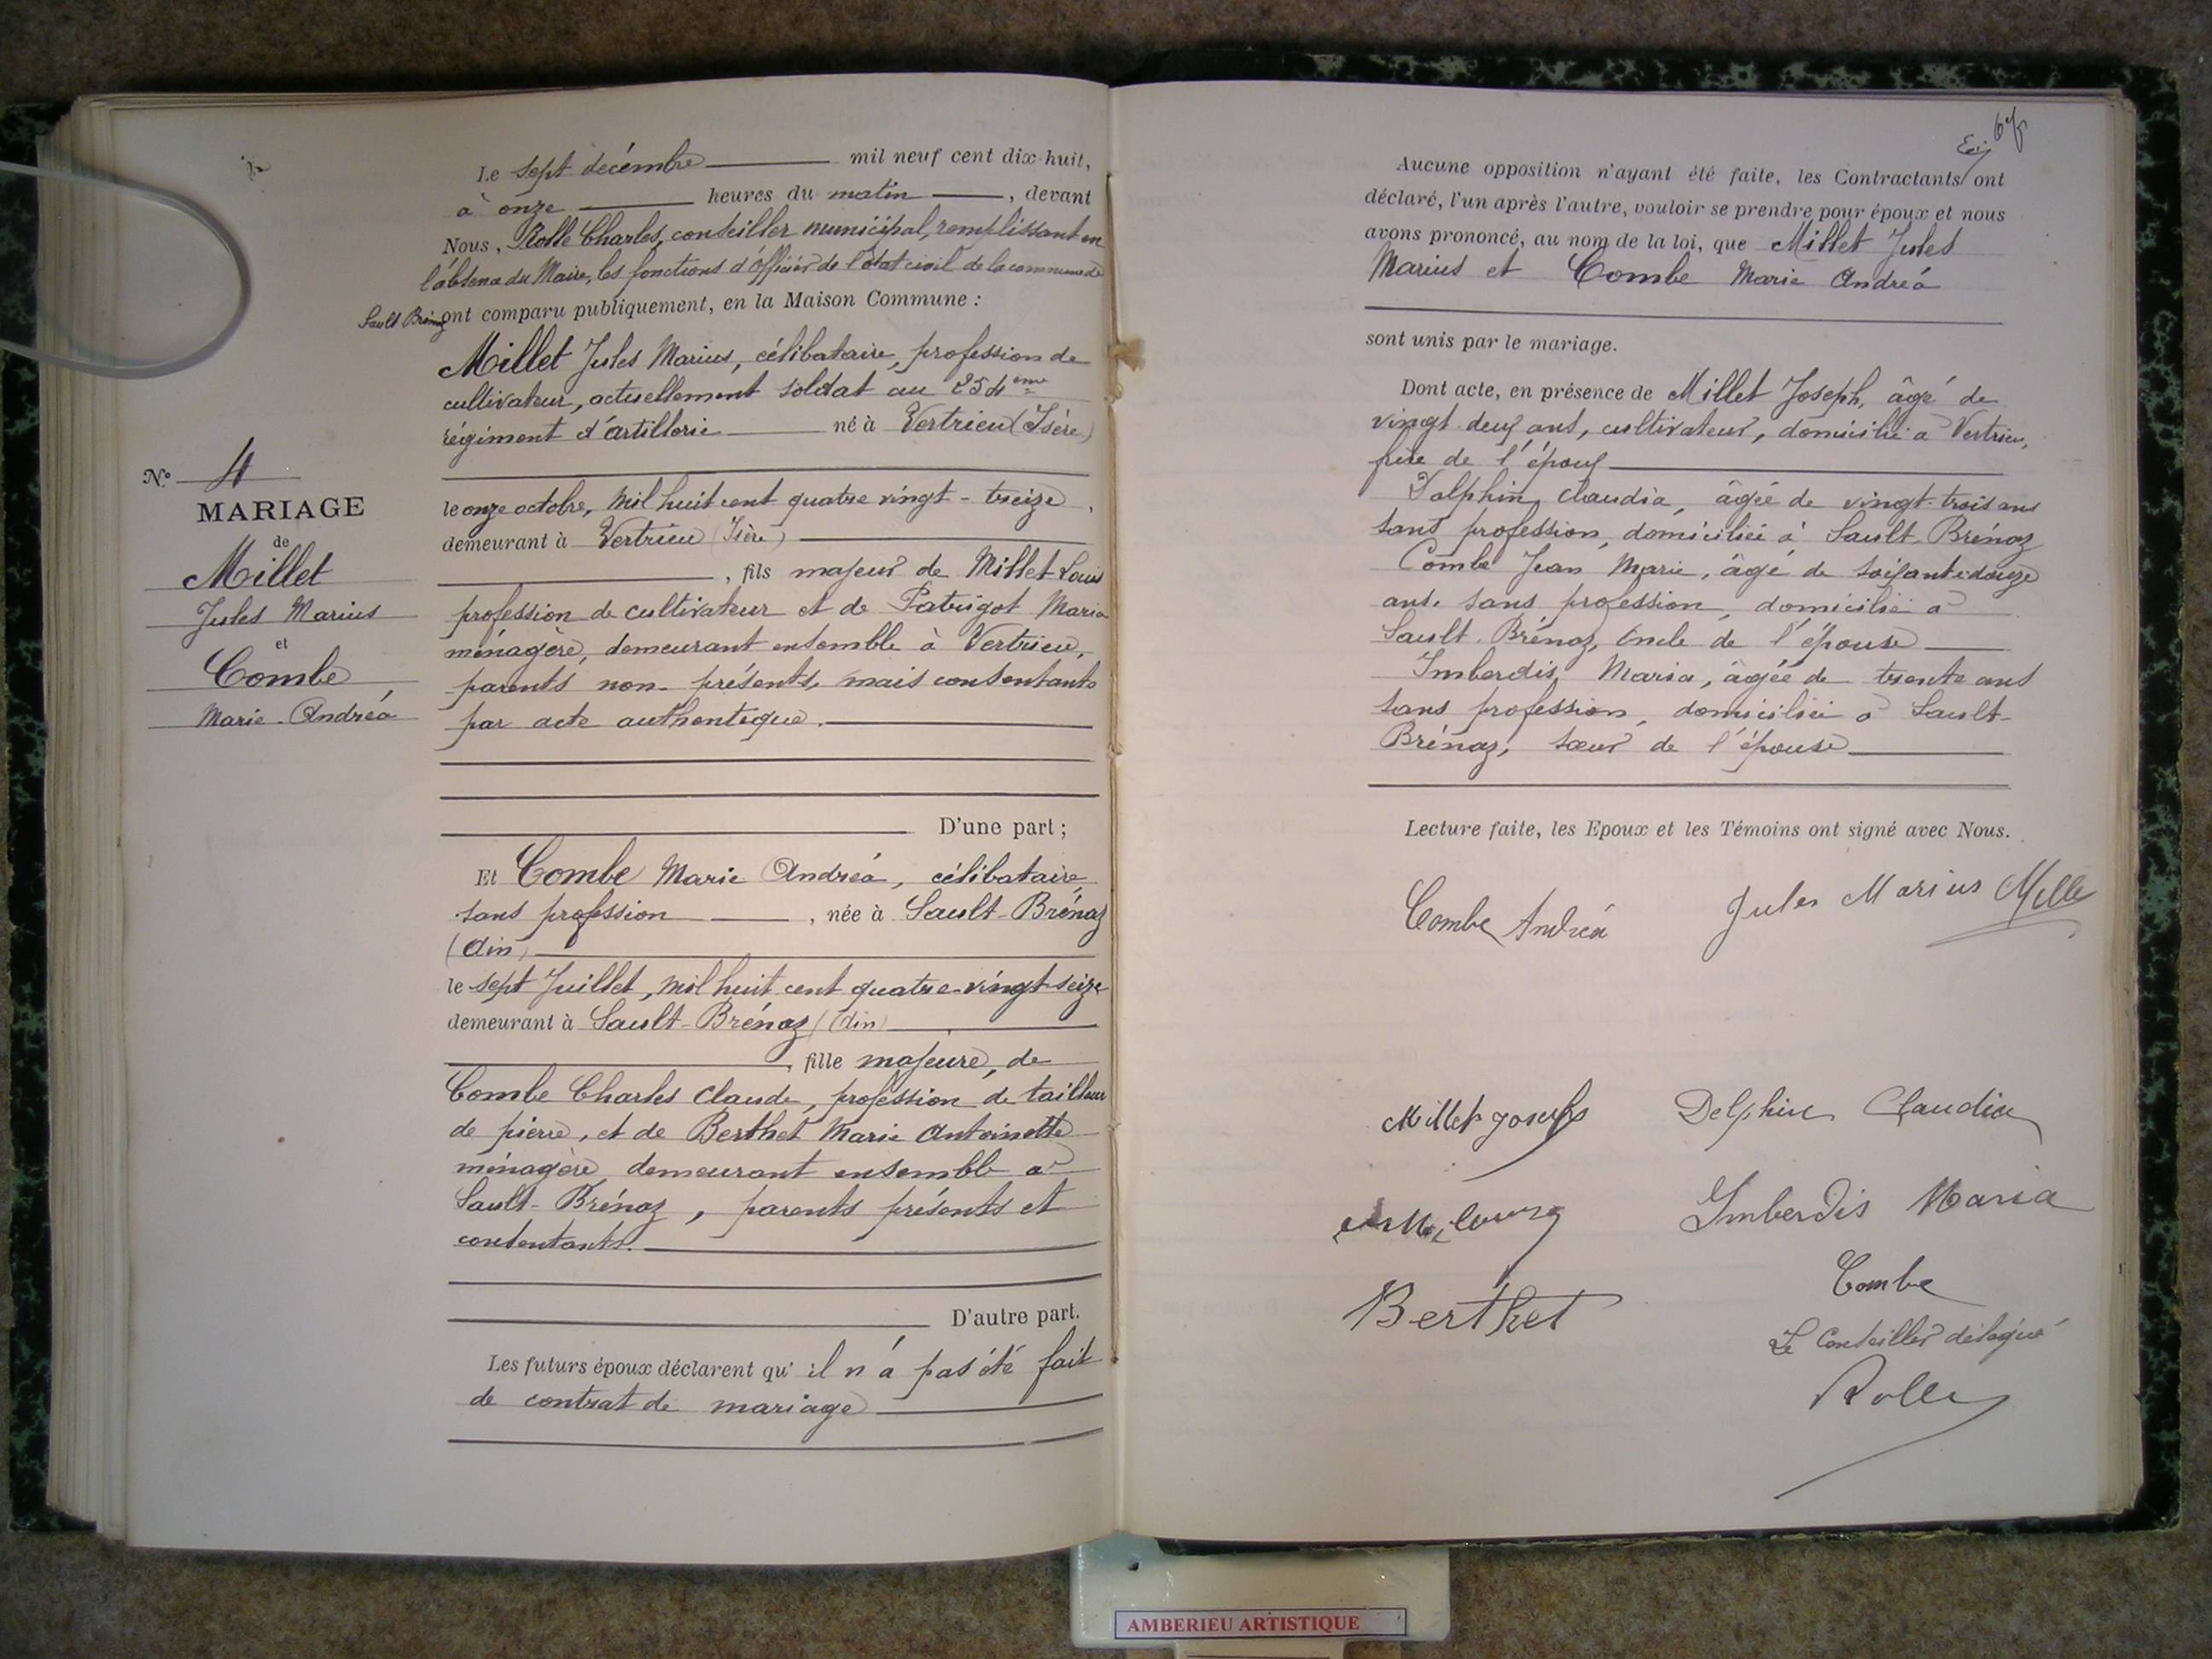 Le sept décembre mil neuf cent dix-huit,
à onze heures du matin, devant
Nous, Rolle Charles, conseiller municipal, remplissant en
l'absence du Maire, les fonctions d'Officier de l'état civil de la commune de
Sault Brénaz ont comparu publiquement, en la Maison Commune :
Millet Jules Marius, célibataire, profession de
cultivateur, actuellement soldat au 254eme
régiment d'artillerie né à Vertrieu (Isère)
le onze octobre, mil huit cent quatre vingt-treize,
demeurant à Vertrieu (Isère)
, fils majeur de Millet Louis
profession de cultivateur et de Patrigot Maria
ménagère, demeurant ensemble à Vertrieu,
parents non-présents, mais consentants
par acte authentique.
D'une part ;
N° 4
MARIAGE
de
Millet
Jules Marius
et
Combe
Marie-Andréa
Et Combe Marie Andréa, célibataire
sans profession, née à Sault-Brénaz
(Ain)
le sept Juillet, mil huit cent quatre-vingt-seize
demeurant à Sault-Brénaz (Ain)
, fille majeure, de
Combe Charles Claude, profession de tailleur
de pierre, et de Berthet Marie Antoinette
ménagère demeurant ensemble à
Sault-Brénaz, parents présents et
consentants.
D'autre part.
Les futurs époux déclarent qu'il n'a pas été fait
de contrat de mariage
Aucune opposition n'ayant été faite, les Contractants ont
déclaré, l'un après l'autre, vouloir se prendre pour époux et nous
avons prononcé, au nom de la loi, que Millet Jules
Marius et Combe Marie Andréa
sont unis par le mariage.
Dont acte, en présence de Millet Joseph, âgé de
vingt-deux ans, cultivateur, domicilié à Vertrieu,
frère de l'époux
Dalphin, Claudia, âgée de vingt-trois ans
sans profession, domiciliée à Sault-Brénaz
Combe Jean Marie, âgé de soixante-douze
ans. sans profession, domicilié à
Sault-Brénaz, oncle de l'épouse
Imberdis, Maria, âgée de trente ans
sans profession, domiciliée à Sault-
Brénaz, sœur de l'épouse
Lecture faite, les Epoux et les Témoins ont signé avec Nous.
Combe Andréa Jules Marius Millet
Millet Joseph Delphin Claudia
Imberdis Maria
Combe
Berthet
Le Conseiller délégué
Rolle
AMBERIEU ARTISTIQUE